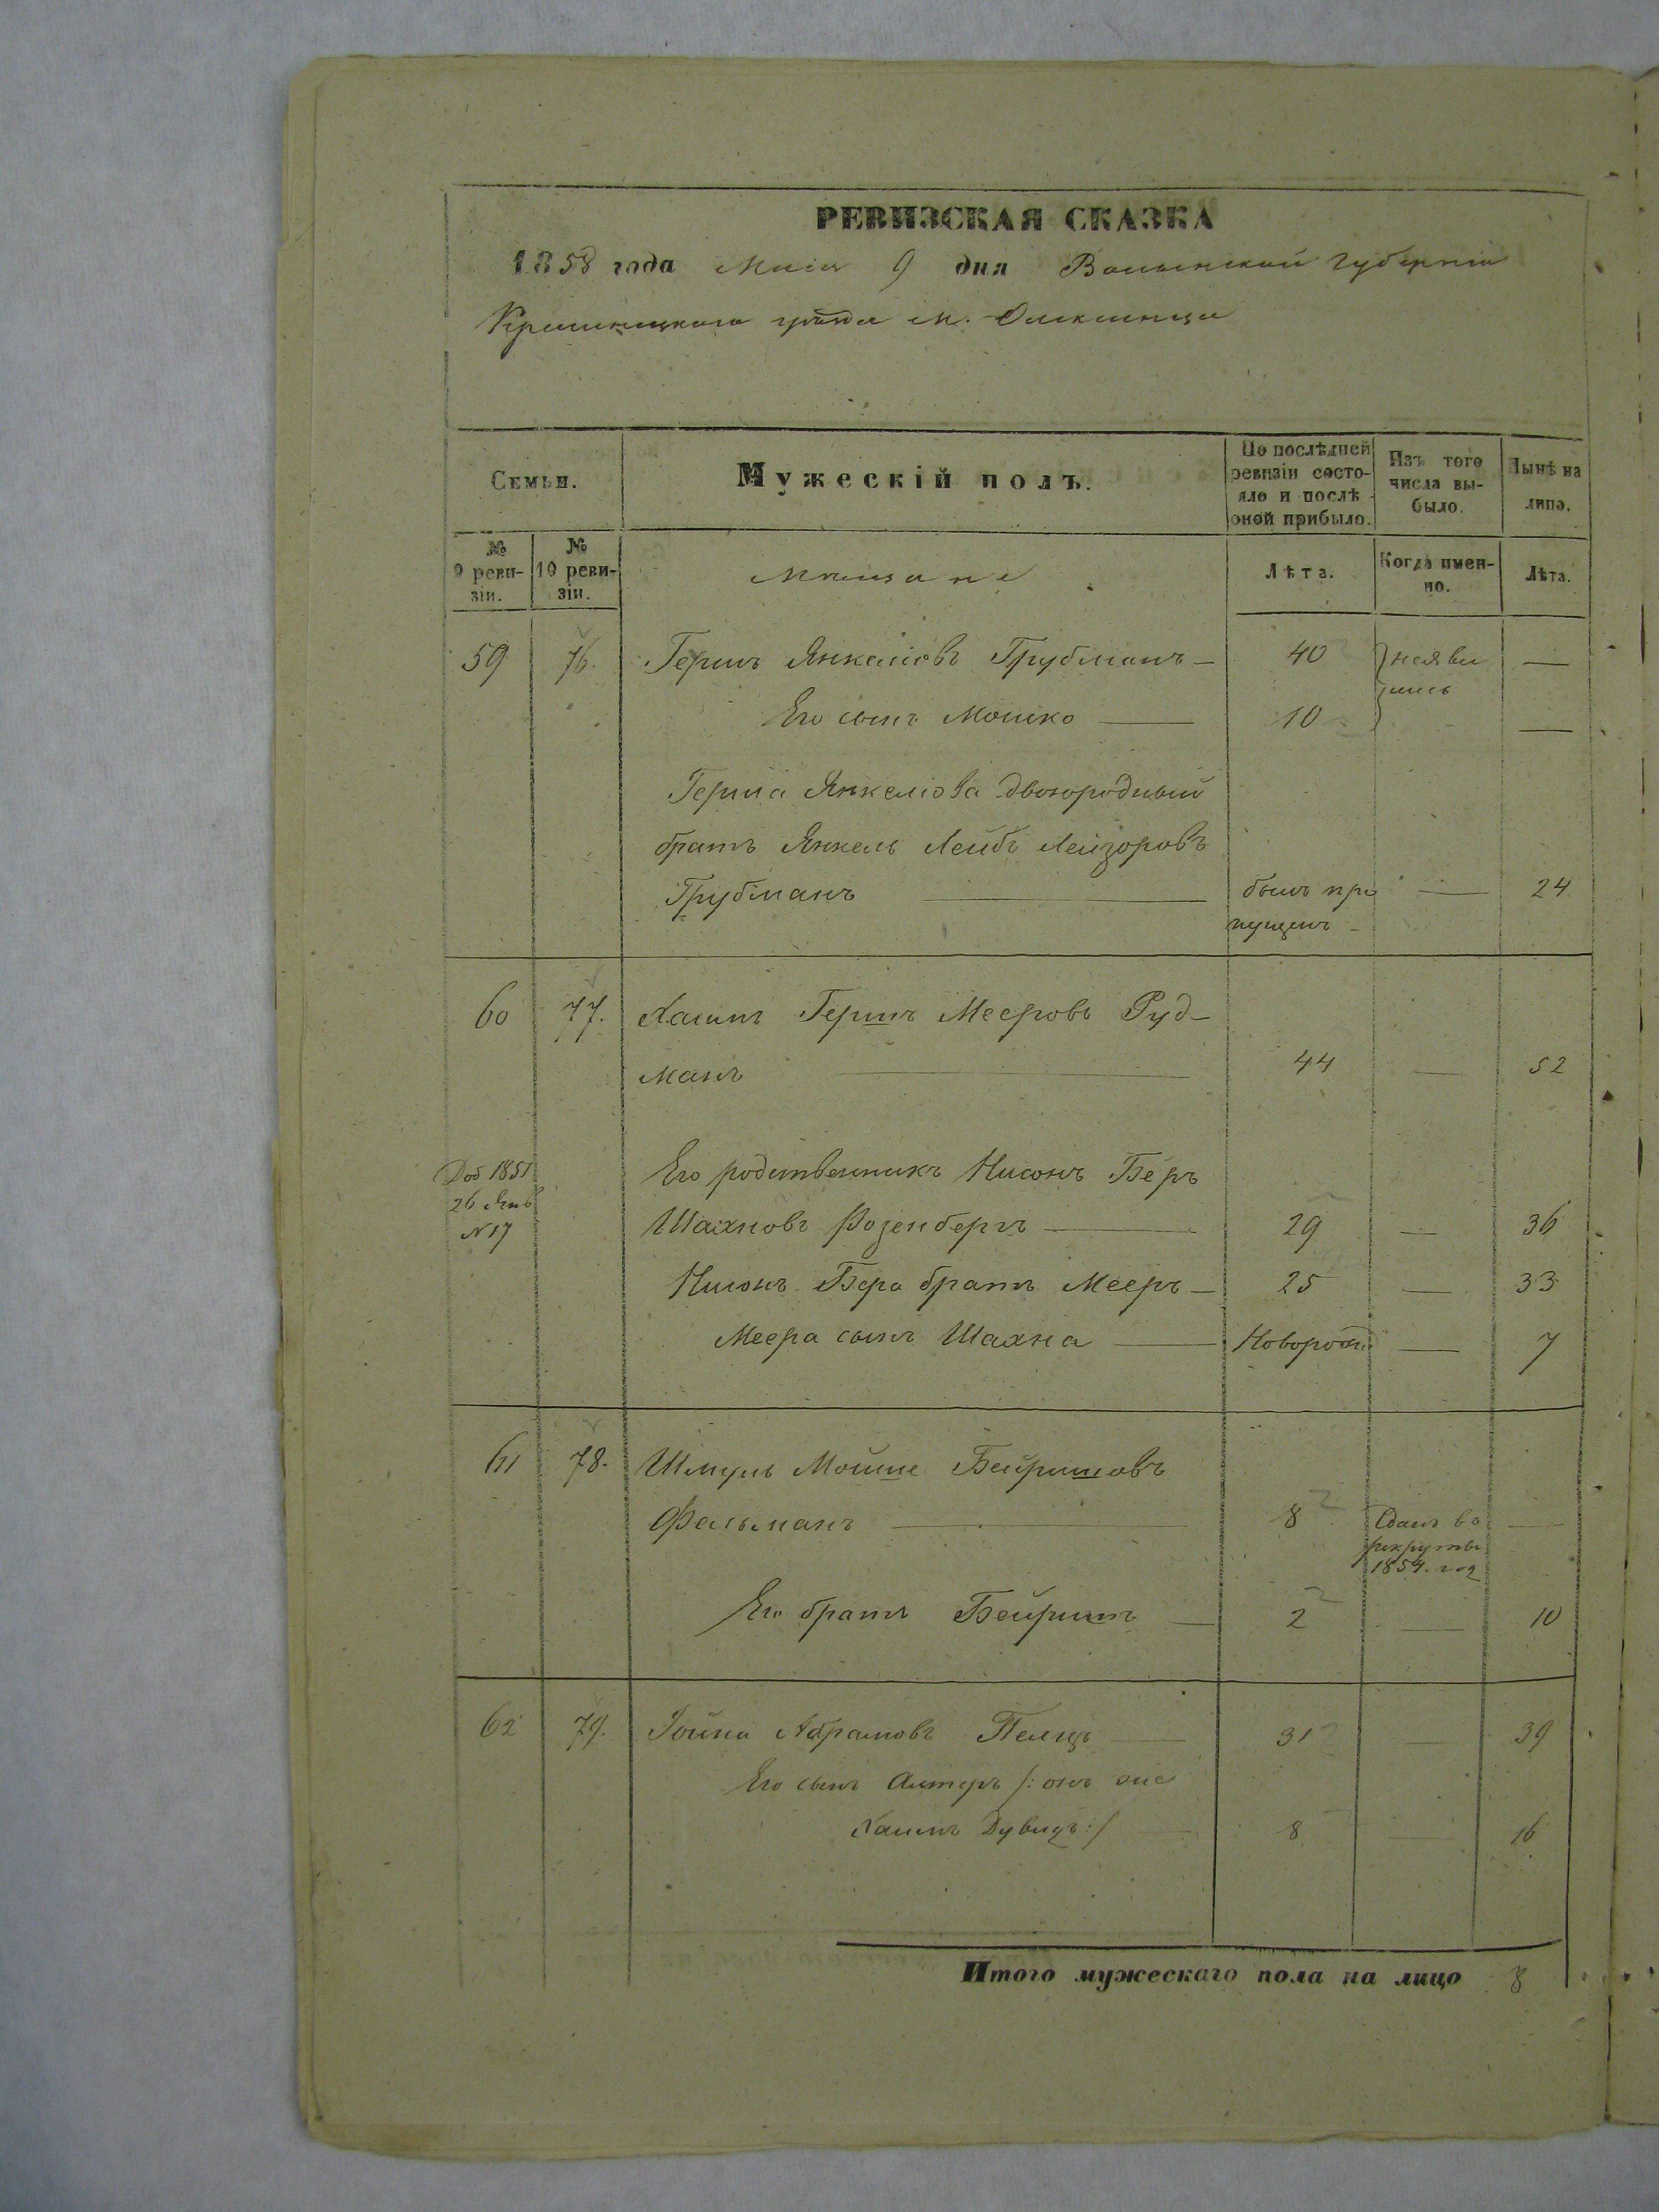 РЕВИЗСКАЯ СКАЗКА
1858 года Маія 9 дня Волынской Губерніи
Кременецкаго уѣзда м. Олексинца
Семьи.
Мужескій полъ.
По послѣдней ревизіи состояло и послѣ оной прибыло.
Изъ того числа выбыло.
Нынѣ на лицо.
№ 9 ревизіи.
№ 10 ревизіи.
Мѣщане
Лѣта.
Когда именно.
Лѣта.
59 76. Гершъ Янкеліовъ Грубманъ — 40 неяви —
лись
Его сынъ Мошко — 10 —
Герша Янкеліова двоюродный
братъ Янкель Лейбъ Лейзоровъ
Грубманъ — былъ про — 24
пущенъ —
60 77. Хаимъ Гершъ Мееровъ Руд-
манъ — 44 — 52
Доб 1851
26 Янв
№ 17
Его родственникъ Нисонъ Беръ
Шахновъ Розенбергъ — 29 — 36
Нисонъ Бера братъ Мееръ — 25 — 33
Меера сынъ Шахна — Новорожд — 7
61 78. Шмуль Мойше Бейришовъ
Фельманъ — 8 Сданъ въ —
рекруты
1854. год
Его братъ Бейришъ — 2 — 10
62 79. Іойна Абрамовъ Пелцъ — 31 — 39
Его сынъ Алтеръ /: онъ же
Хаимъ Дувидъ :/ — 8 — 16
Итого мужескаго пола на лицо 8